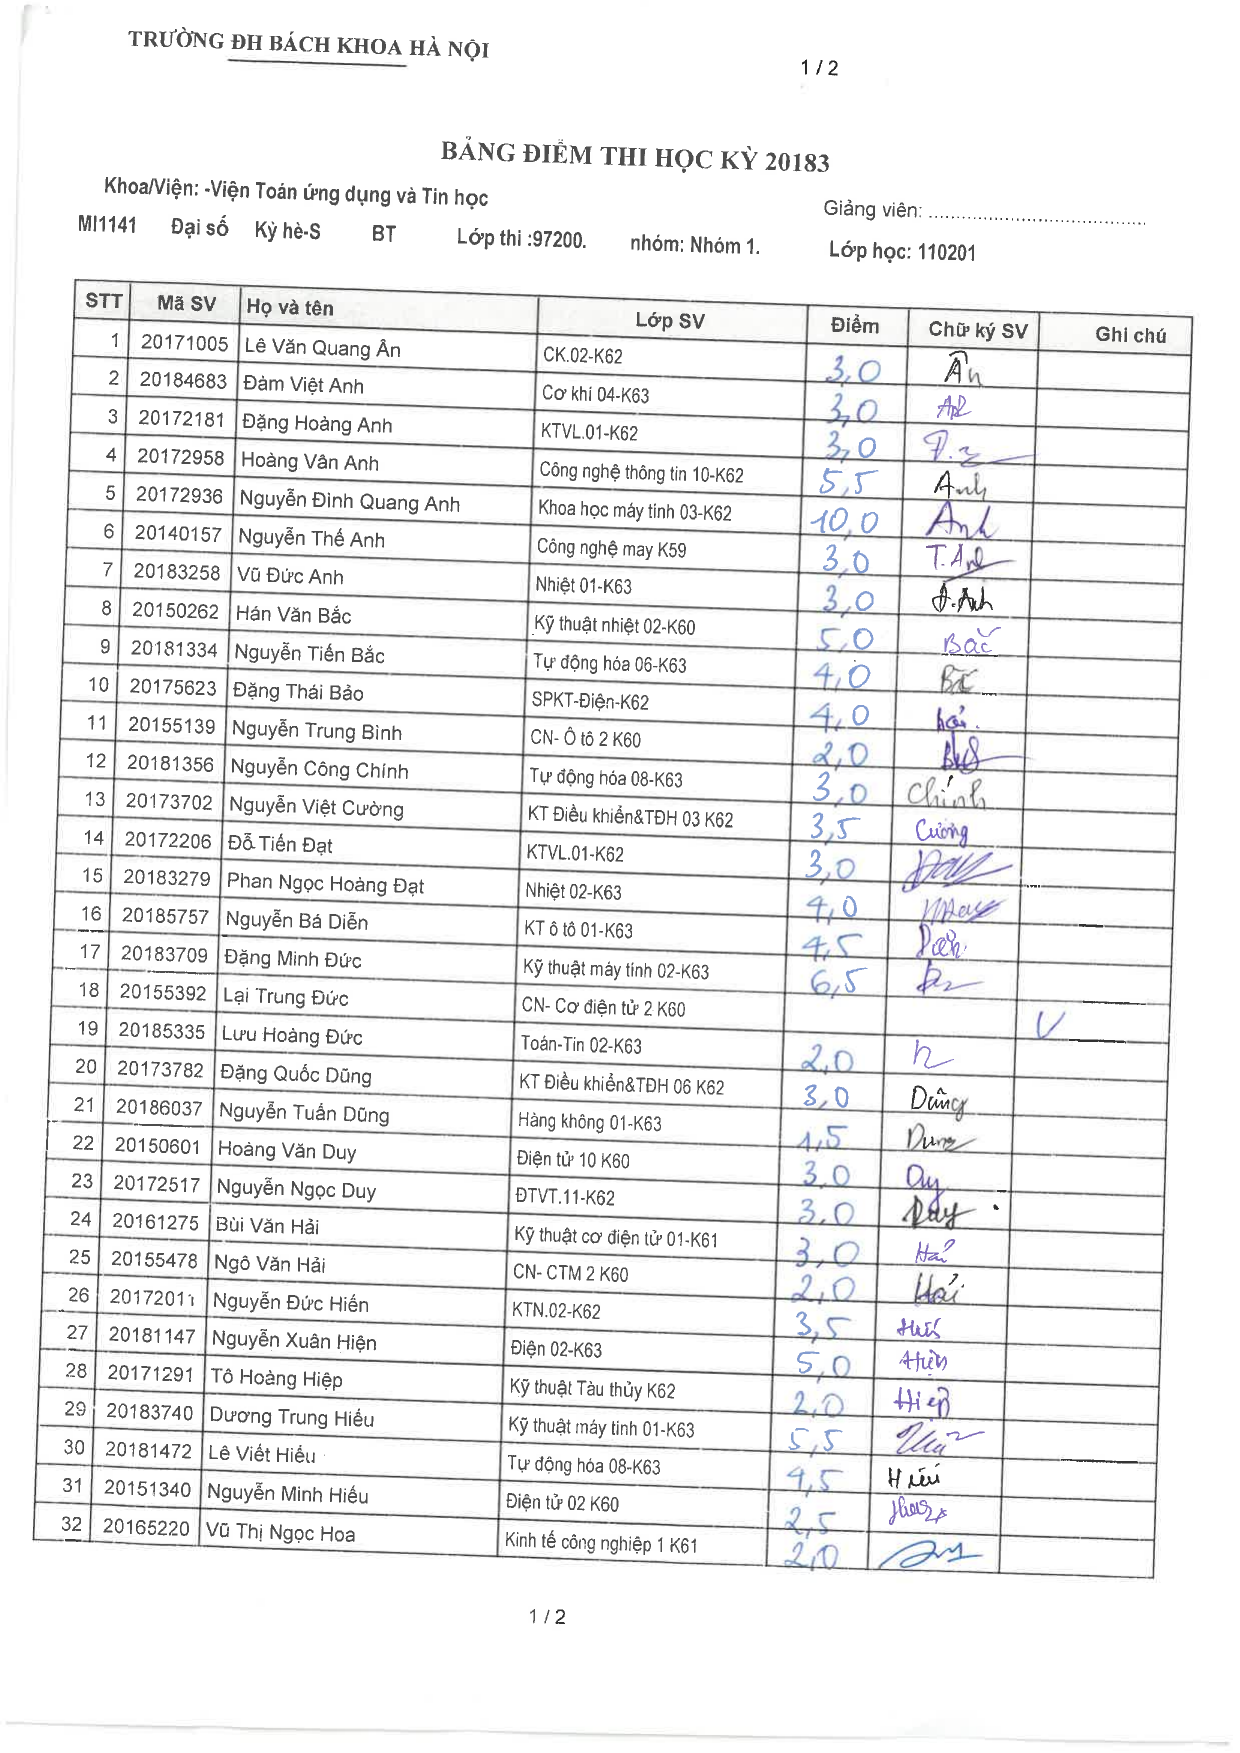 TRƯỜNG ĐH BÁCH KHOA HÀ NỘI
1 / 2
BẢNG ĐIỂM THI HỌC KỲ 20183
Khoa/Viện: -Viện Toán ứng dụng và Tin học
Giảng viên: ........................................
MI1141 Đại số Kỳ hè-S BT Lớp thi :97200. nhóm: Nhóm 1. Lớp học: 110201
STT Mã SV Họ và tên Lớp SV Điểm Chữ ký SV Ghi chú
1 20171005 Lê Văn Quang Ân CK.02-K62 3,0 Ân
2 20184683 Đàm Việt Anh Cơ khí 04-K63 3,0
3 20172181 Đặng Hoàng Anh KTVL.01-K62 3,0
4 20172958 Hoàng Vân Anh Công nghệ thông tin 10-K62 5,5 Anh
5 20172936 Nguyễn Đình Quang Anh Khoa học máy tính 03-K62 10,0 Anh
6 20140157 Nguyễn Thế Anh Công nghệ may K59 3,0 T.Anh
7 20183258 Vũ Đức Anh Nhiệt 01-K63 3,0 Đ.Anh
8 20150262 Hán Văn Bắc Kỹ thuật nhiệt 02-K60 5,0 Bắc
9 20181334 Nguyễn Tiến Bắc Tự động hóa 06-K63 4,0
10 20175623 Đặng Thái Bảo SPKT-Điện-K62 4,0
11 20155139 Nguyễn Trung Bình CN- Ô tô 2 K60 2,0
12 20181356 Nguyễn Công Chính Tự động hóa 08-K63 3,0 Chính
13 20173702 Nguyễn Việt Cường KT Điều khiển&TĐH 03 K62 3,5 Cường
14 20172206 Đỗ Tiến Đạt KTVL.01-K62 3,0
15 20183279 Phan Ngọc Hoàng Đạt Nhiệt 02-K63 4,0
16 20185757 Nguyễn Bá Diễn KT ô tô 01-K63 4,5
17 20183709 Đặng Minh Đức Kỹ thuật máy tính 02-K63 6,5
18 20155392 Lại Trung Đức CN- Cơ điện tử 2 K60 V
19 20185335 Lưu Hoàng Đức Toán-Tin 02-K63 2,0
20 20173782 Đặng Quốc Dũng KT Điều khiển&TĐH 06 K62 3,0 Dũng
21 20186037 Nguyễn Tuấn Dũng Hàng không 01-K63 1,5 Dung
22 20150601 Hoàng Văn Duy Điện tử 10 K60 3,0 Duy
23 20172517 Nguyễn Ngọc Duy ĐTVT.11-K62 3,0 Duy
24 20161275 Bùi Văn Hải Kỹ thuật cơ điện tử 01-K61 3,0 Hải
25 20155478 Ngô Văn Hải CN- CTM 2 K60 2,0 Hải
26 20172011 Nguyễn Đức Hiến KTN.02-K62 3,5
27 20181147 Nguyễn Xuân Hiện Điện 02-K63 5,0 Hiện
28 20171291 Tô Hoàng Hiệp Kỹ thuật Tàu thủy K62 2,0 Hiệp
29 20183740 Dương Trung Hiếu Kỹ thuật máy tính 01-K63 5,5
30 20181472 Lê Viết Hiếu Tự động hóa 08-K63 4,5 Hiếu
31 20151340 Nguyễn Minh Hiếu Điện tử 02 K60 2,5
32 20165220 Vũ Thị Ngọc Hoa Kinh tế công nghiệp 1 K61 2,0
1 / 2